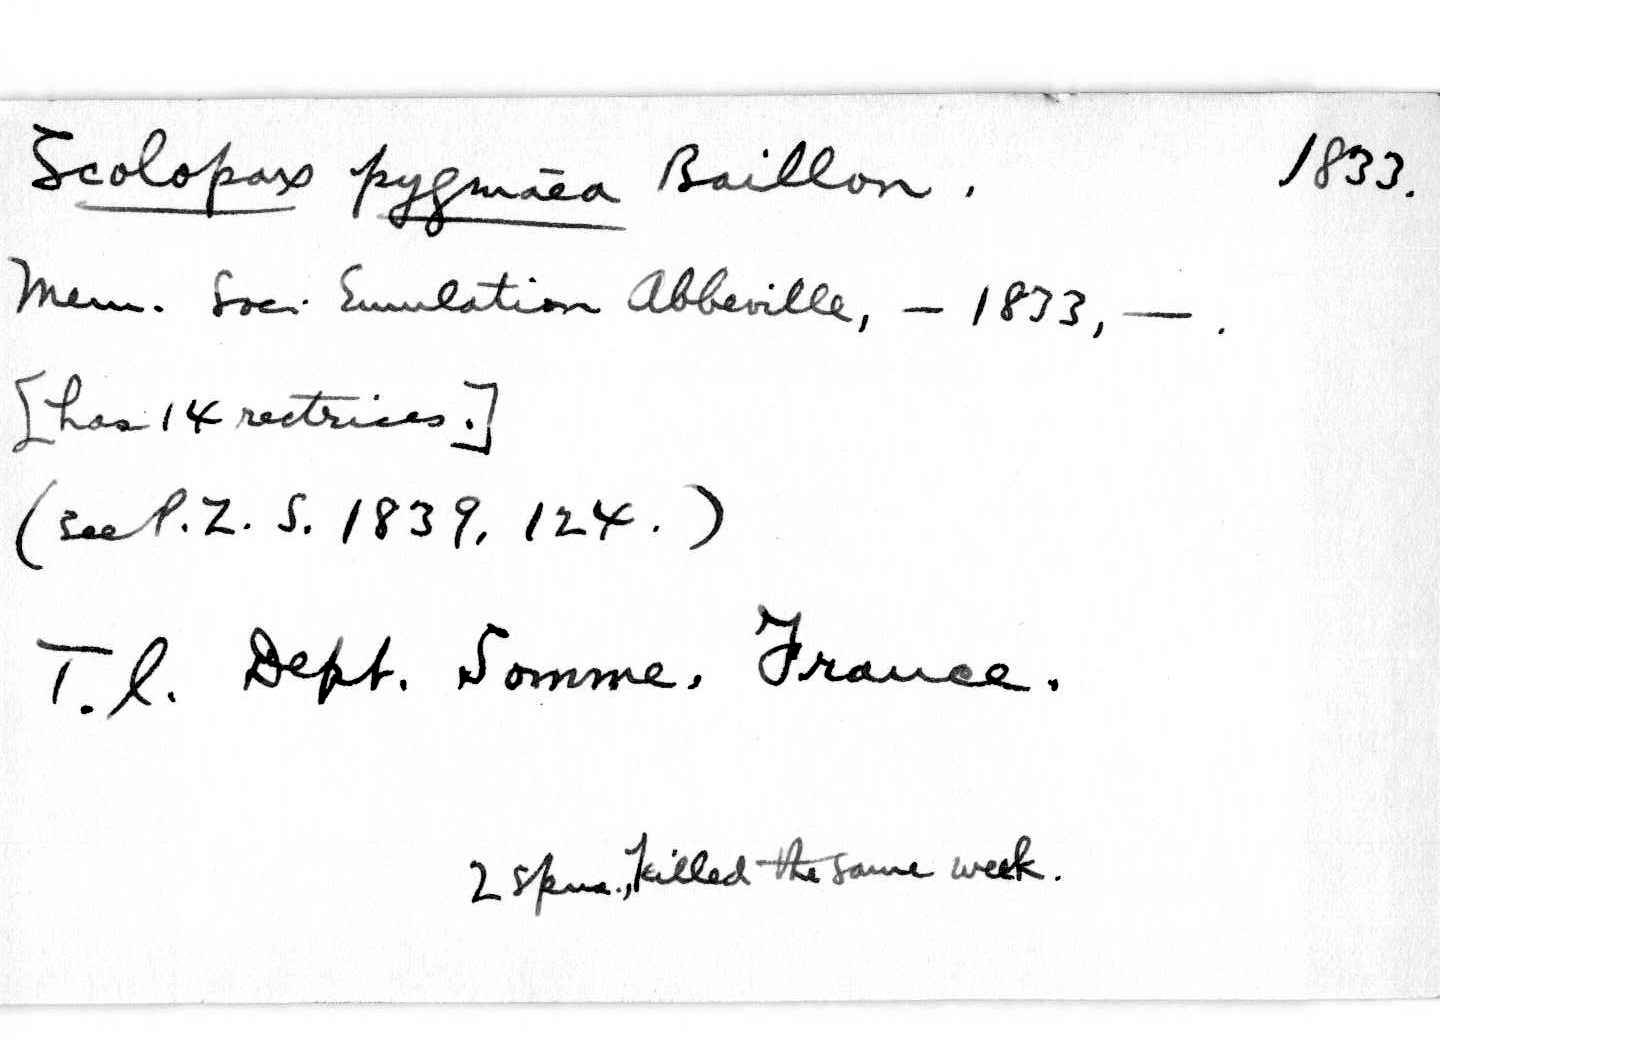 Scolopax pygmāea Baillon. 1833.
Mem. Soc. Emulation Abbeville, — 1833, — .
[has 14 rectrices.]
(see P. Z. S. 1839, 124.)
T. l. Dept. Somme, France.
2 spms., killed the same week.